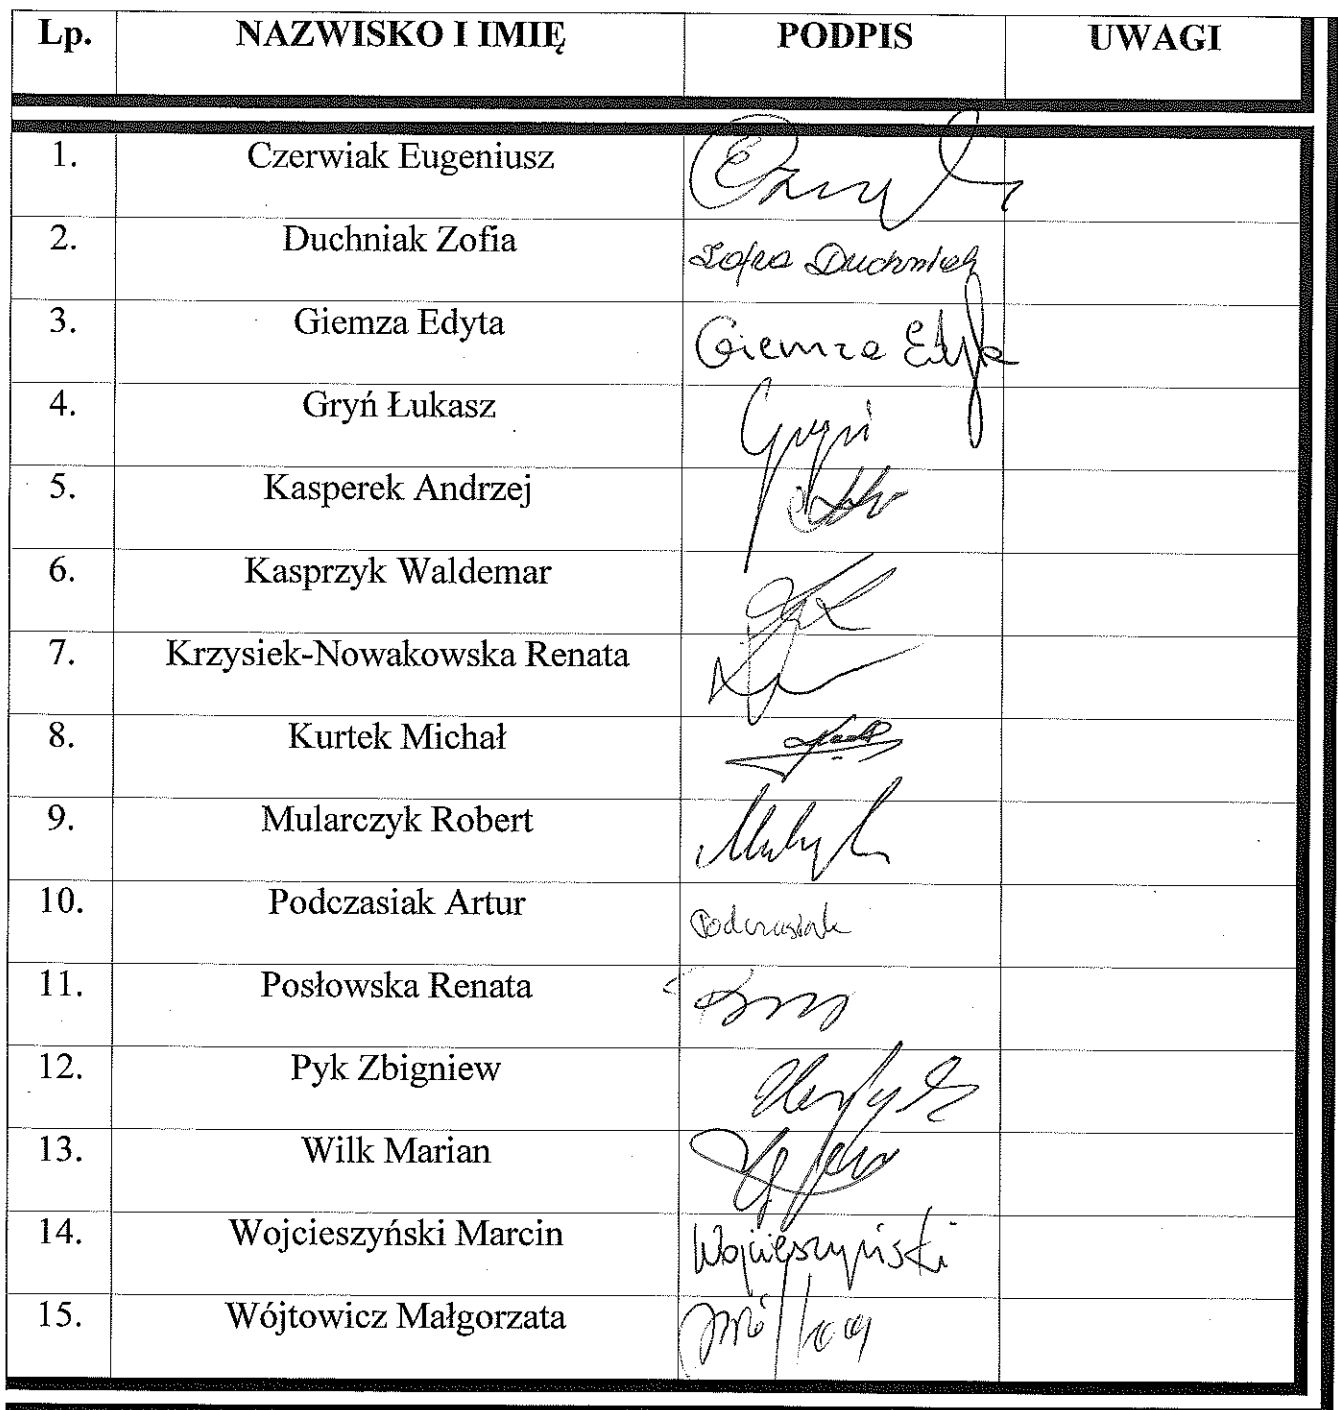 Lp. NAZWISKO I IMIĘ PODPIS UWAGI
1. Czerwiak Eugeniusz
2. Duchniak Zofia Zofia Duchniak
3. Giemza Edyta Giemza Edyta
4. Gryń Łukasz Gryń
5. Kasperek Andrzej
6. Kasprzyk Waldemar
7. Krzysiek-Nowakowska Renata
8. Kurtek Michał
9. Mularczyk Robert
10. Podczasiak Artur Podczasiak
11. Posłowska Renata
12. Pyk Zbigniew
13. Wilk Marian
14. Wojcieszyński Marcin Wojcieszyński
15. Wójtowicz Małgorzata